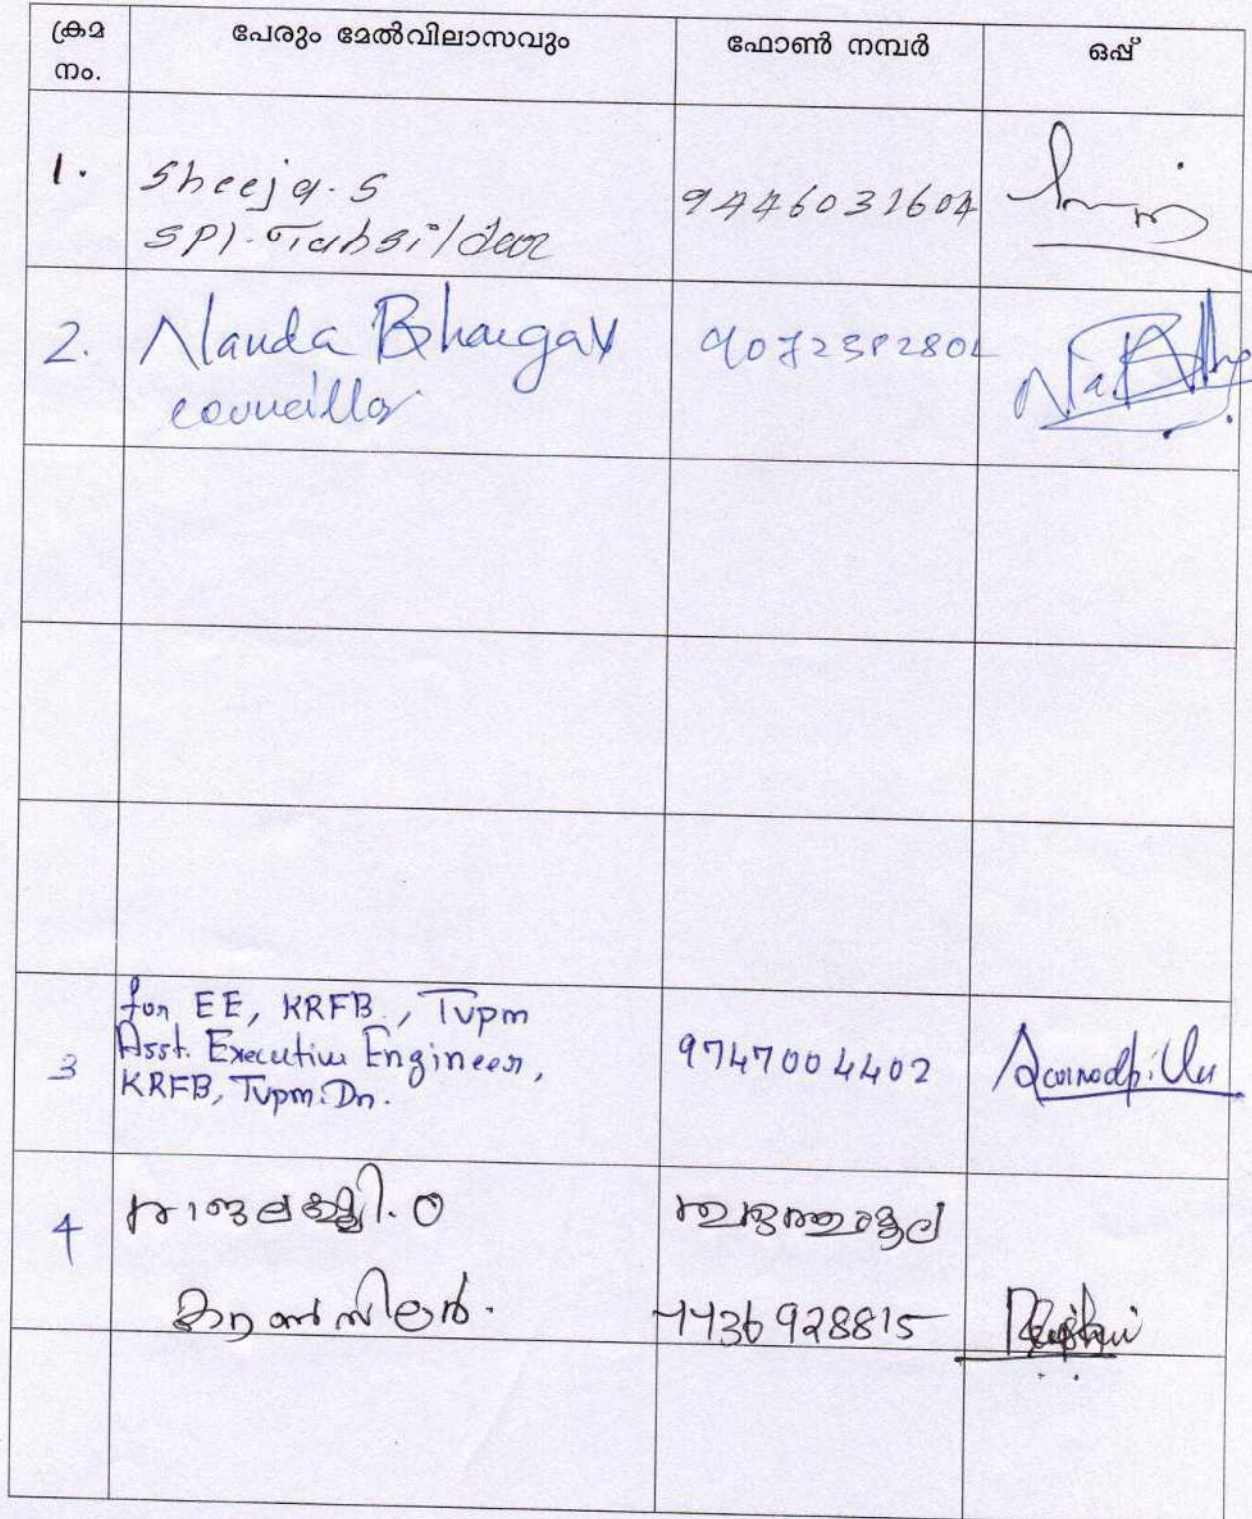 ക്രമ നം.
പേരും മേൽവിലാസവും
ഫോൺ നമ്പർ
ഒപ്പ്
1.
Sheeja.S
Spl.Tahsildar
9446031604
2.
Nanda Bhargav
councillor
3
for EE, KRFB, Tvpm
Asst. Executive Engineer,
KRFB, Tvpm.Dn.
9747004402
4
രാജലക്ഷ്മി. O
കൗൺസിലർ.